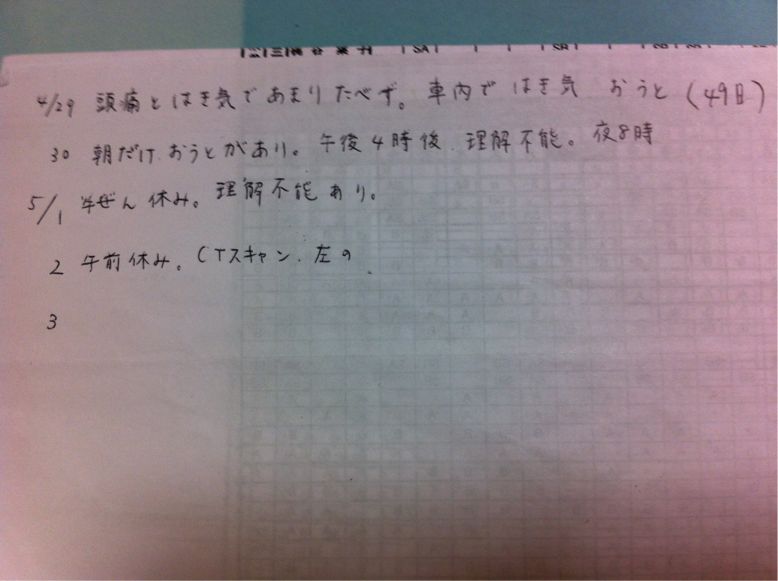 4/29 頭痛とはき気であまりたべず。車内ではき気 おうと(49日)
30 朝だけ おうとがあり。午後4時後 理解不能。夜8時
5/1 午ぜん休み。理解不能あり。
2 午前休み。CTスキャン. 左の
3